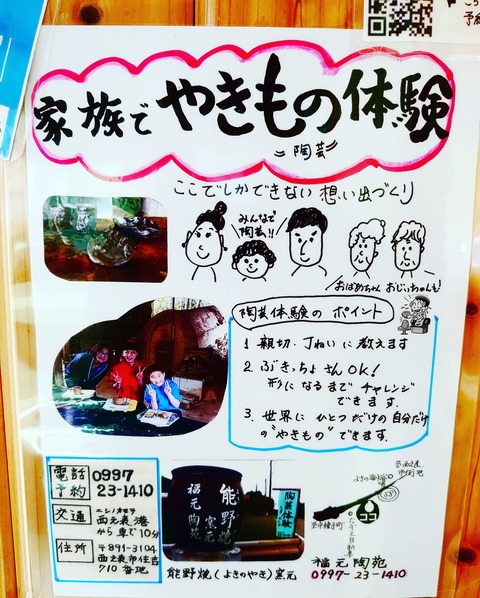 家族で やきもの体験
陶芸
ここでしかできない 想い出づくり
みんなで
陶芸!!
おばあちゃん おじいちゃんも!
陶芸体験の ポイント
1 親切・丁ねいに 教えます
2. ぶきっちょさん OK!
形になるまで チャレンジ
できます.
3. 世界に ひとつだけの自分だけ
の"やきもの"できます.
電話
予約
0997
23-1410
交通
西之表港
から 車で10分
住所
〒891-3104
西之表市住吉
710番地
能野焼
窯元
福元陶苑
陶芸体験
能野焼(よきのやき)窯元
58
ココ
至中種子町
福元 陶苑
0997-23-1410